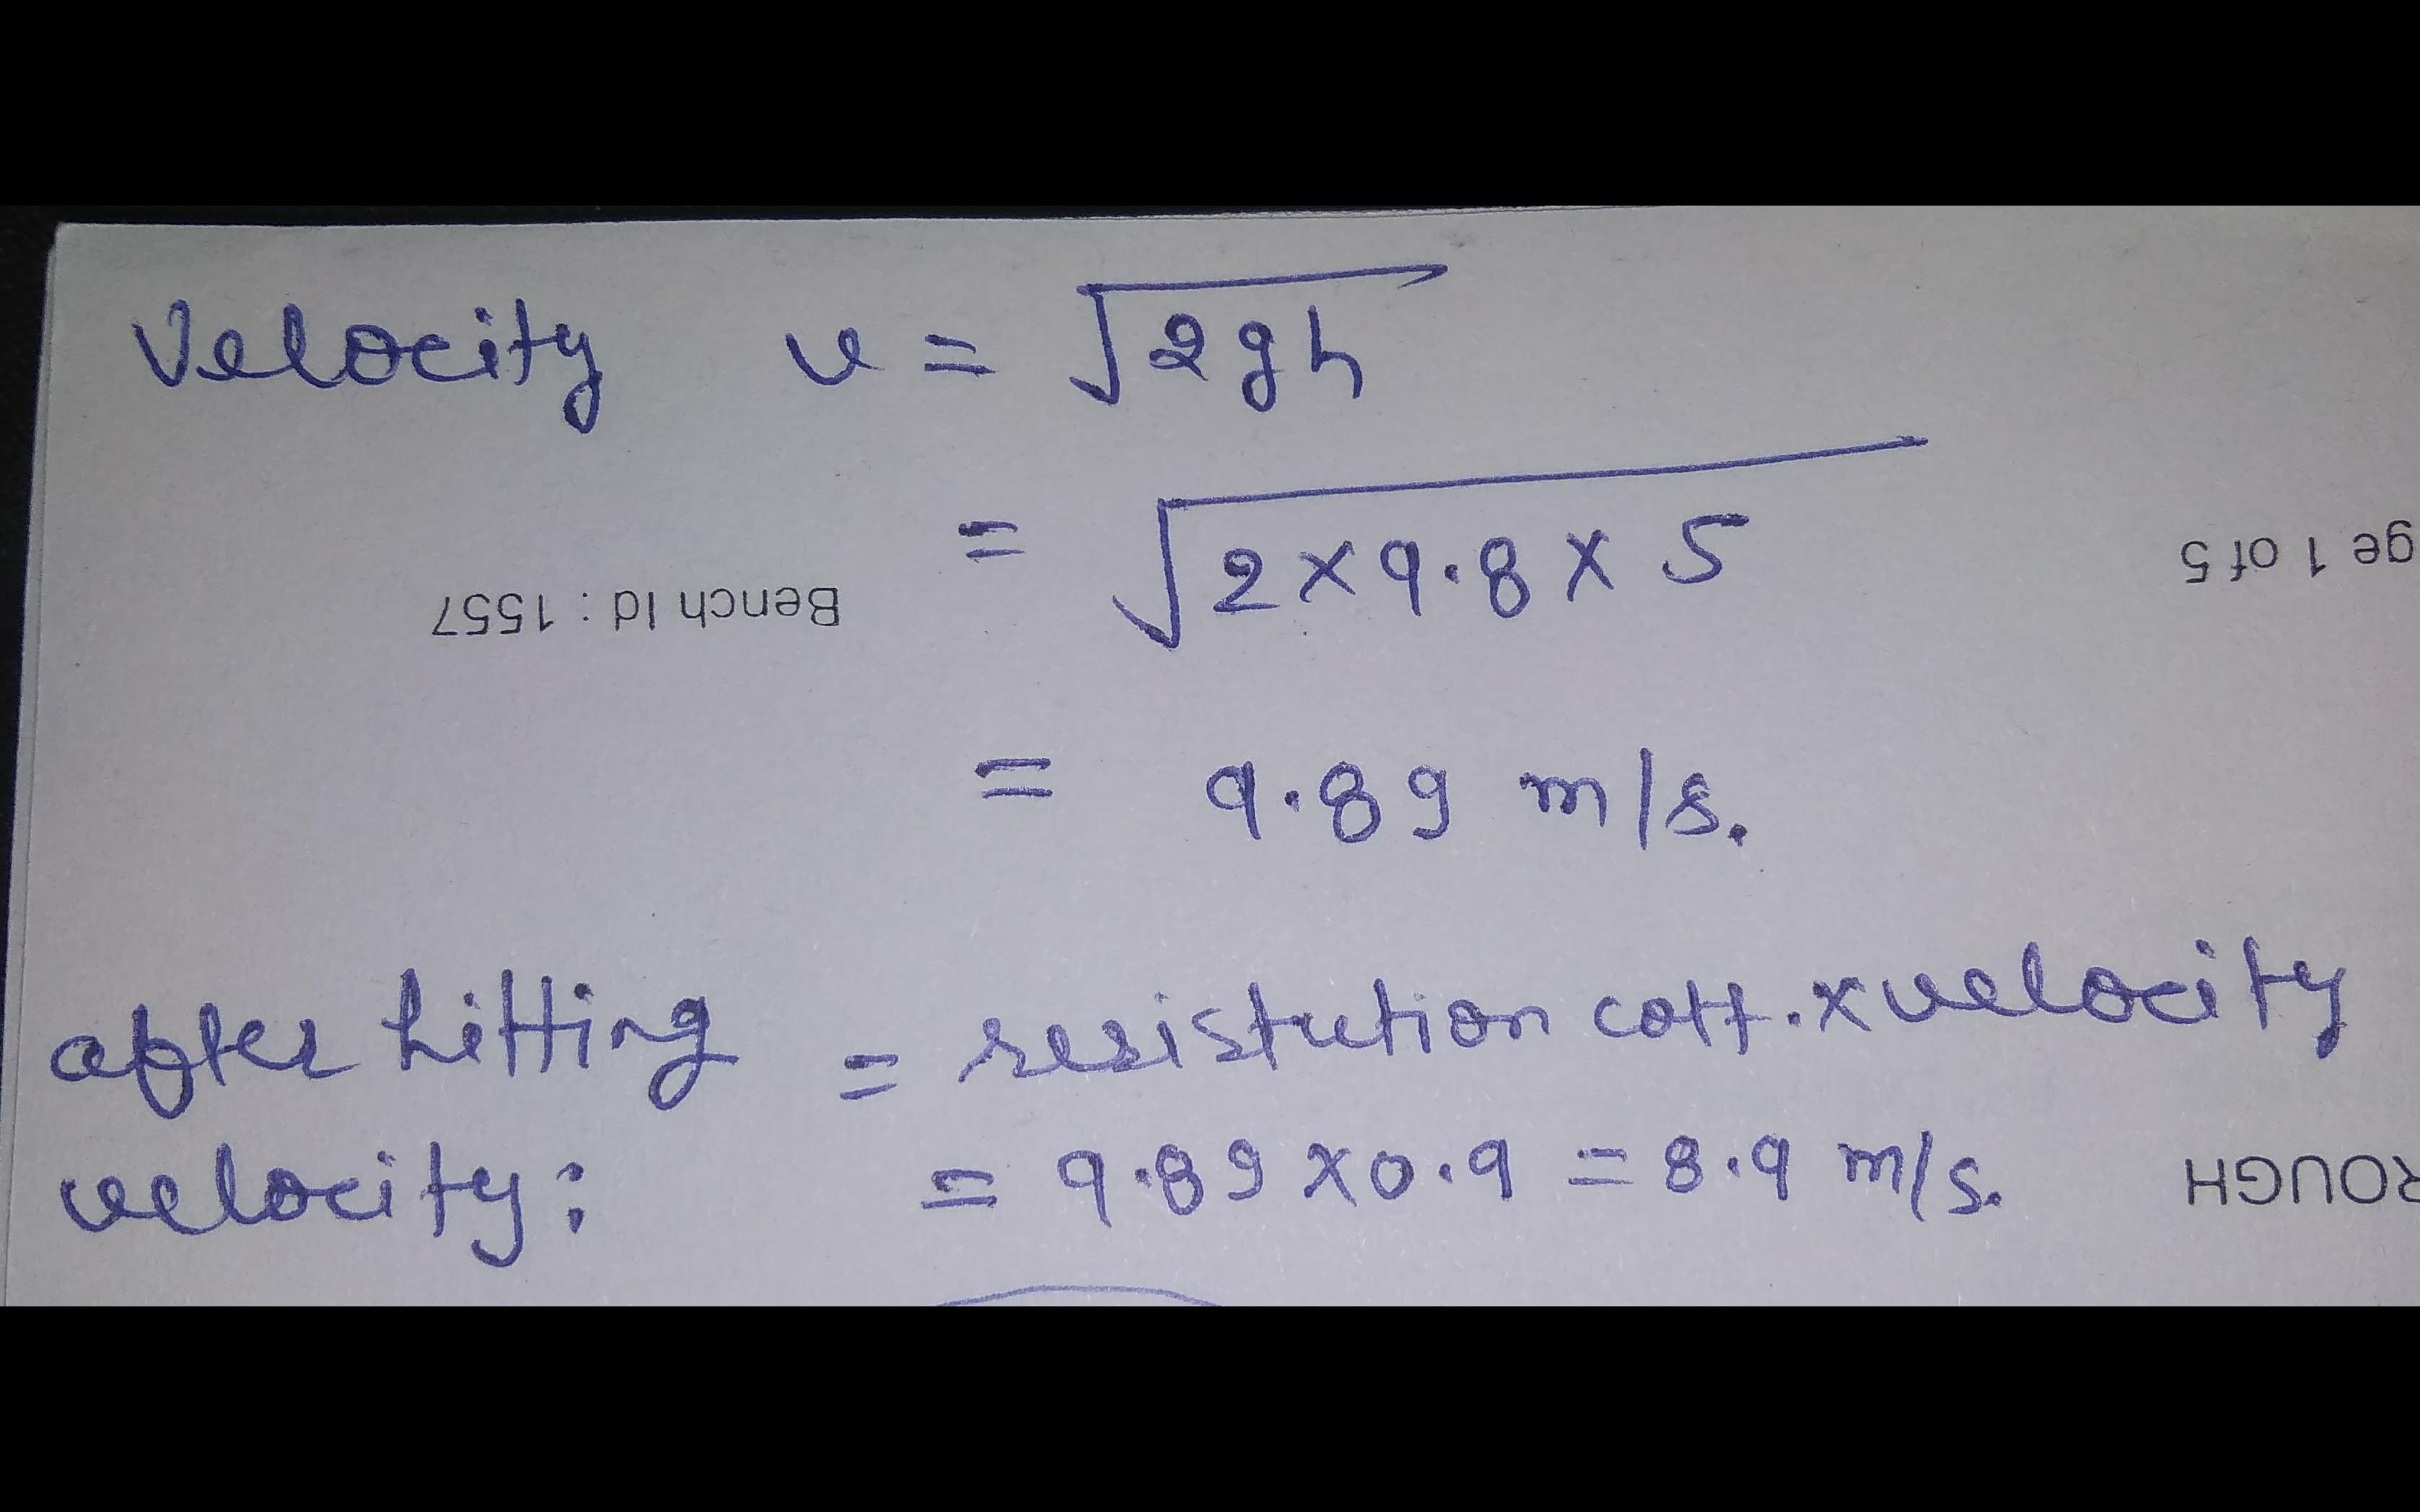 Velocity v = √2gh
= √2×9.8×5
Bench Id : 1557
ge 1 of 5
= 9.89 m/s.
after hitting = resistution coff. × velocity
velocity: = 9.89 × 0.9 = 8.9 m/s.
ROUGH